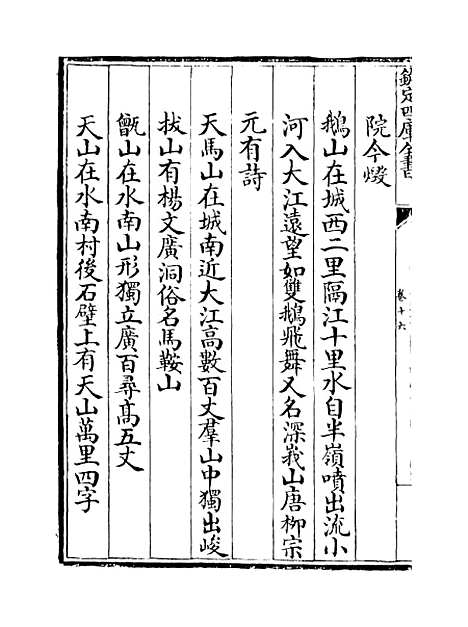 欽定四庫全書
卷十六
院今燬
鵝山在城西二里隔江十里水自半嶺噴出流小
河入大江遠望如雙鵝飛舞又名深峩山唐栁宗
元有詩
天馬山在城南近大江髙數百丈羣山中獨出峻
拔山有楊文廣洞俗名馬鞍山
甑山在水南山形獨立廣百尋髙五丈
天山在水南村後石壁上有天山萬里四字